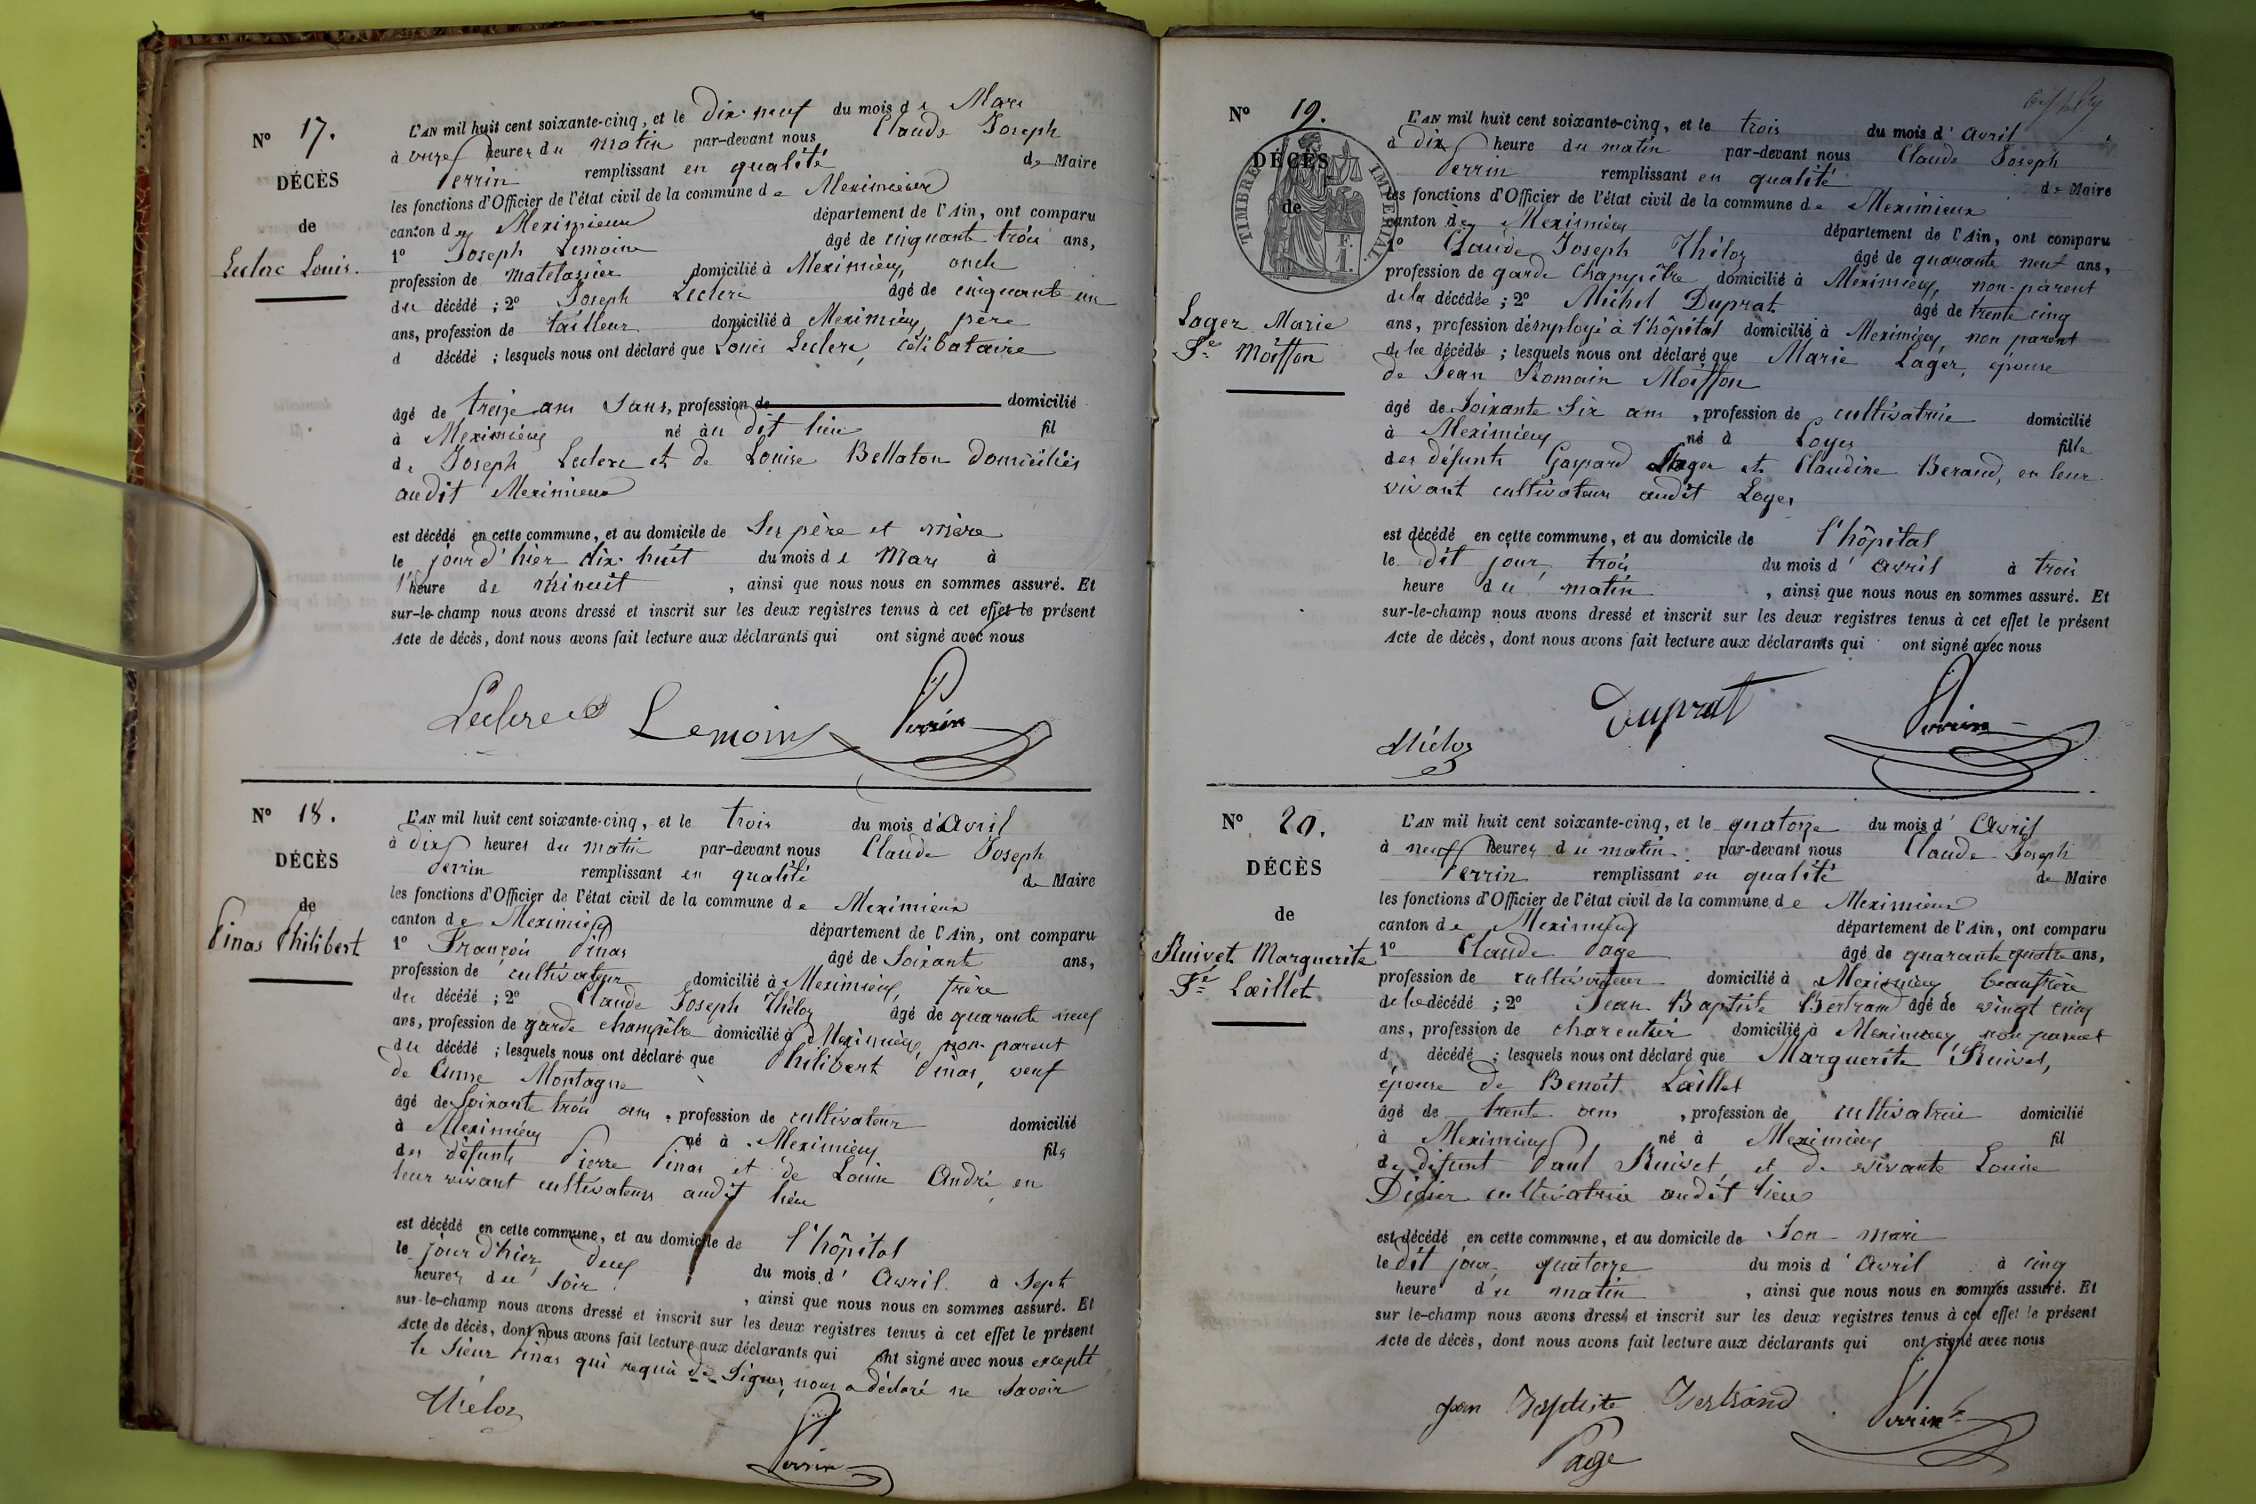 N° 17.
DÉCÈS
de
Leclerc Louis.
L'AN mil huit cent soixante-cinq, et le dix-neuf du mois de Mars
à onze heures du matin par-devant nous Claude Joseph
Perrin remplissant en qualité de Maire
les fonctions d'Officier de l'état civil de la commune de Meximieux
canton de Meximieux département de l'Ain, ont comparu
1° Joseph Lemoine âgé de cinquante trois ans,
profession de matelassier domicilié à Meximieux, oncle
du décédé ; 2° Joseph Leclerc âgé de cinquante un
ans, profession de tailleur domicilié à Meximieux, père
d décédé ; lesquels nous ont déclaré que Louis Leclerc, célibataire
âgé de treize ans sans, profession de domicilié
à Meximieux né au dit lieu fil
de Joseph Leclerc et de Louise Bellaton domiciliés
audit Meximieux
est décédé en cette commune, et au domicile de ses père et mère
le jour d'hier dix-huit du mois de Mars à
l'heure de minuit, ainsi que nous nous en sommes assuré. Et
sur-le-champ nous avons dressé et inscrit sur les deux registres tenus à cet effet le présent
Acte de décès, dont nous avons fait lecture aux déclarants qui ont signé avec nous
Leclerc Lemoine Perrin
N° 18.
DÉCÈS
de
Pinas Philibert
L'AN mil huit cent soixante-cinq, et le trois du mois d'Avril
à dix heures du matin par-devant nous Claude Joseph
Perrin remplissant en qualité de Maire
les fonctions d'Officier de l'état civil de la commune de Meximieux
canton de Meximieux département de l'Ain, ont comparu
1° François Pinas âgé de soixante ans,
profession de cultivateur domicilié à Meximieux, frère
du décédé ; 2° Claude Joseph Théloz âgé de quarante neuf
ans, profession de garde champêtre domicilié à Meximieux, non-parent
du décédé ; lesquels nous ont déclaré que Philibert Pinas, veuf
de Anne Montagne
âgé de soixante trois ans, profession de cultivateur domicilié
à Meximieux né à Meximieux fils
des défunts Pierre Pinas et de Louise André, en
leur vivant cultivateurs audit lieu
est décédé en cette commune, et au domicile de l'hôpital
le jour d'hier, deux du mois d'Avril à sept
heures du soir, ainsi que nous nous en sommes assuré. Et
sur-le-champ nous avons dressé et inscrit sur les deux registres tenus à cet effet le présent
Acte de décès, dont nous avons fait lecture aux déclarants qui ont signé avec nous excepté
le sieur Pinas qui requis de signer, nous a déclaré ne savoir
Théloz Perrin
N° 19.
DÉCÈS
de
TIMBRE IMPÉRIAL
Lager Marie
Fe Moiffon
L'AN mil huit cent soixante-cinq, et le trois du mois d'avril
à dix heure du matin par-devant nous Claude Joseph
Perrin remplissant en qualité de Maire
les fonctions d'Officier de l'état civil de la commune de Meximieux
canton de Meximieux département de l'Ain, ont comparu
1° Claude Joseph Théloz âgé de quarante neuf ans,
profession de garde champêtre domicilié à Meximieux, non-parent
de la décédée ; 2° Michel Duprat âgé de trente cinq
ans, profession d'employé à l'hôpital domicilié à Meximieux, non parent
de la décédée ; lesquels nous ont déclaré que Marie Lager, épouse
de Jean Romain Moiffon
âgé de soixante six ans, profession de cultivatrice domicilié
à Meximieux né à Loyes fille
des défunts Gaspard Lager et Claudine Beraud, en leur
vivant cultivateurs audit Loyes
est décédé en cette commune, et au domicile de l'hôpital
le dit jour, trois du mois d'avril à trois
heure du matin, ainsi que nous nous en sommes assuré. Et
sur-le-champ nous avons dressé et inscrit sur les deux registres tenus à cet effet le présent
Acte de décès, dont nous avons fait lecture aux déclarants qui ont signé avec nous
Théloz Duprat Perrin
N° 20.
DÉCÈS
de
Ruivet Marguerite
Fe Lœillet
L'AN mil huit cent soixante-cinq, et le quatorze du mois d'Avril
à neuf heures du matin par-devant nous Claude Joseph
Perrin remplissant en qualité de Maire
les fonctions d'Officier de l'état civil de la commune de Meximieux
canton de Meximieux département de l'Ain, ont comparu
1° Claude Page âgé de quarante quatre ans,
profession de cultivateur domicilié à Meximieux beaufrère
de la décédé ; 2° Jean Baptiste Bertrand âgé de vingt cinq
ans, profession de charpentier domicilié à Meximieux, non parent
d décédé ; lesquels nous ont déclaré que Marguerite Ruivet,
épouse de Benoit Lœillet
âgé de trente ans, profession de cultivatrice domicilié
à Meximieux né à Meximieux fil
de défunt Paul Ruivet, et de vivante Louise
Didier cultivatrice audit lieu
est décédé en cette commune, et au domicile de son mari
le dit jour, quatorze du mois d'avril à cinq
heure du matin, ainsi que nous nous en sommes assuré. Et
sur le-champ nous avons dressé et inscrit sur les deux registres tenus à cet effet le présent
Acte de décès, dont nous avons fait lecture aux déclarants qui ont signé avec nous
jean Baptiste Bertrand Perrin
Page